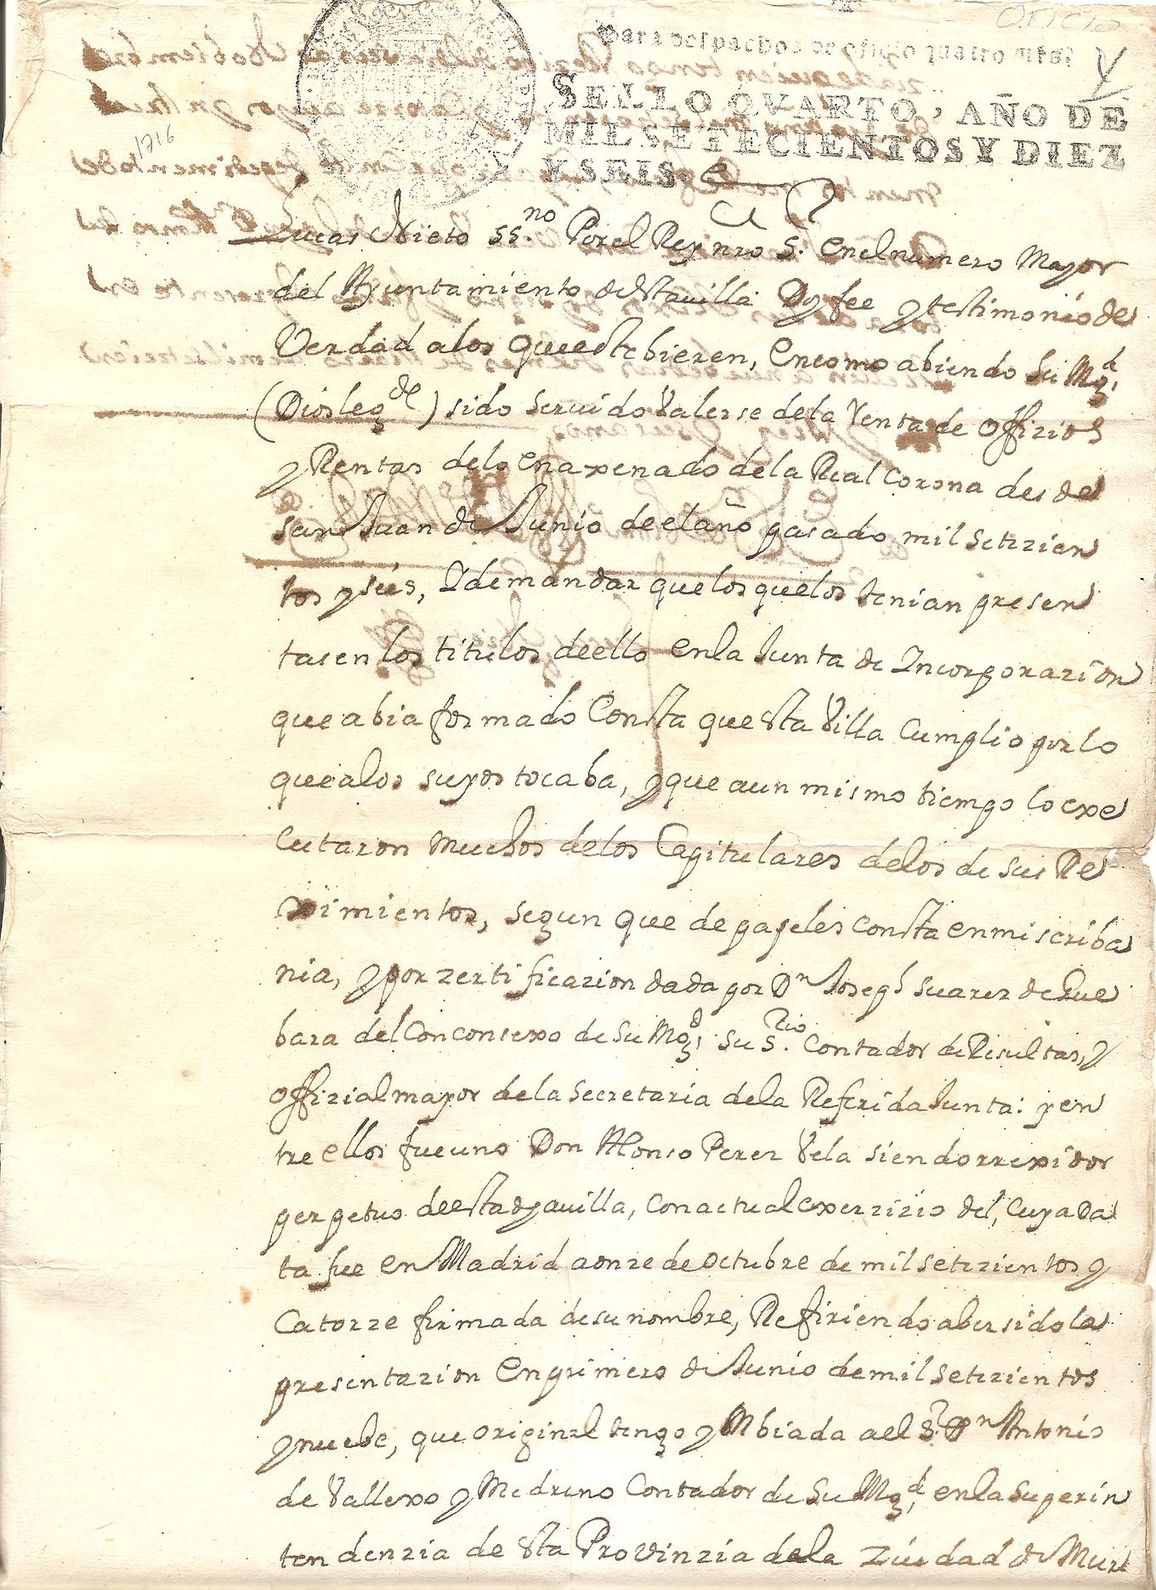 offizio
Para despachos de oficio quatro mrs.
SELLO QVARTO, AÑO DE
MIL SETECIENTOS Y DIEZ
Y SEIS.
1716
Lucas Nieto ss.no Por el Rey nro S. en el numero Mayor
del Ayuntamiento desta villa Doy fee y testimonio de
Verdad a los que este bieren, en como abiendo Su Mgd.
(Dios le gde) sido servido Valerse de la Venta de offizios
y Rentas de lo enaxenado de la Real Corona desde
san Juan de Junio de el año pasado mil setezien
tos y seis, Y demandar que los que los tenian presen
tasen los titulos de ello en la Junta de Incorporazion
que abia formado Consta que esta Villa Cumplio por lo
que a los suyos tocaba, y que a un mismo tiempo lo exe
cutaron muchos de los Capitulares de los de sus Re
ximientos, segun que de papeles consta en mi scriba
nia, y por zertificazion dada por Dn Joseph suarez de Gue
bara del Con consexo de Su Mgd. su S.rio Contador de Resultas, y
offizial mayor de la secretaria de la Referida Junta: y en
tre ellos fue uno Don Alonso Perez Vela siendo rrexidor
perpetuo de esta dha villa, con actual exerzizio del, Cuya Da
ta fue en Madrid a onze de octubre de mil setezientos y
Catorze firmada de su nombre, Refiriendo aber sido la
presentazion en primero de Junio de mil setezientos
y nuebe, que original tengo y Mbiada a el S.r Dn Antonio
de Vallexo y Medrano Contador de Su Mgd. en la superin
tendenzia de sta Provinzia de la Ziudad de Mur